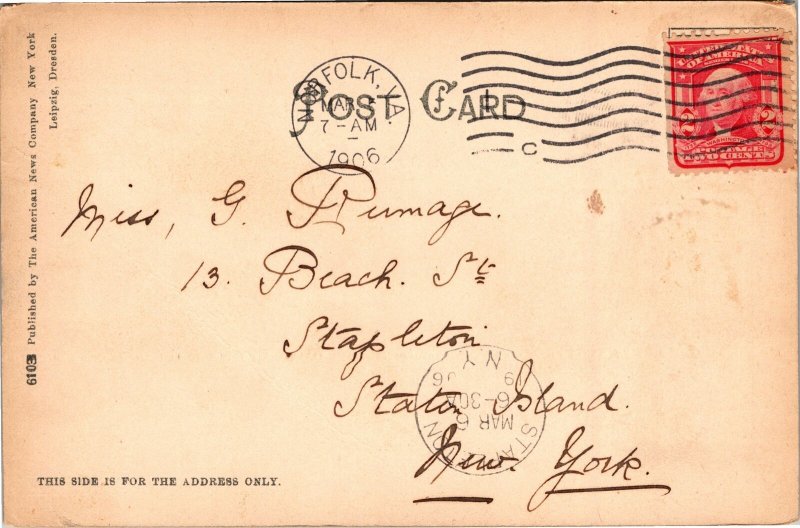 POST CARD
NORFOLK, VA.
MAR 5
7-AM
1906
C
UNITED STATES
OF AMERICA
2 2
WASHINGTON
TWO CENTS
Miss, G. Rumage.
13. Beach. St
Stapleton
Staton Island.
New. York.
STAPLETON
MAR 6
6-30A
1906
N Y
THIS SIDE IS FOR THE ADDRESS ONLY.
6103 Published by The American News Company New York
Leipzig, Dresden.